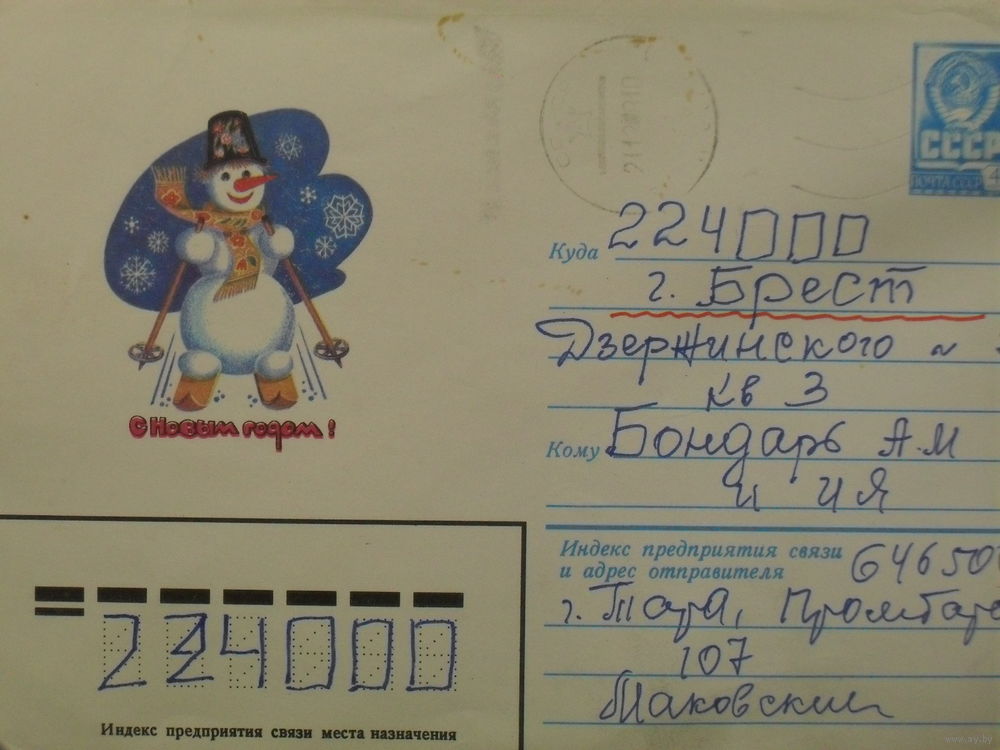 СССР
ПОЧТА СССР
С Новым годом!
Куда 224000
г. Брест
Дзержинского
кв 3
Кому Бондарь А.М
и И Я
Индекс предприятия связи
и адрес отправителя
г. Тара,
107
Маковский
224000
Индекс предприятия связи места назначения
www.ay.by